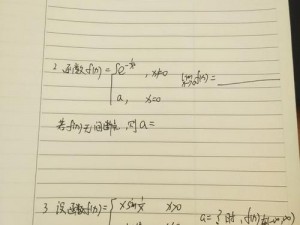 2. 函数f(x)= { e^{-1/x²}, x≠0 lim_{x→0} f(x)=
a, x=0
若f(x)无间断点,则a=
3. 设函数f(x)= { x sin 1/x x>0 a= 时,f(x)在(-∞,+∞)